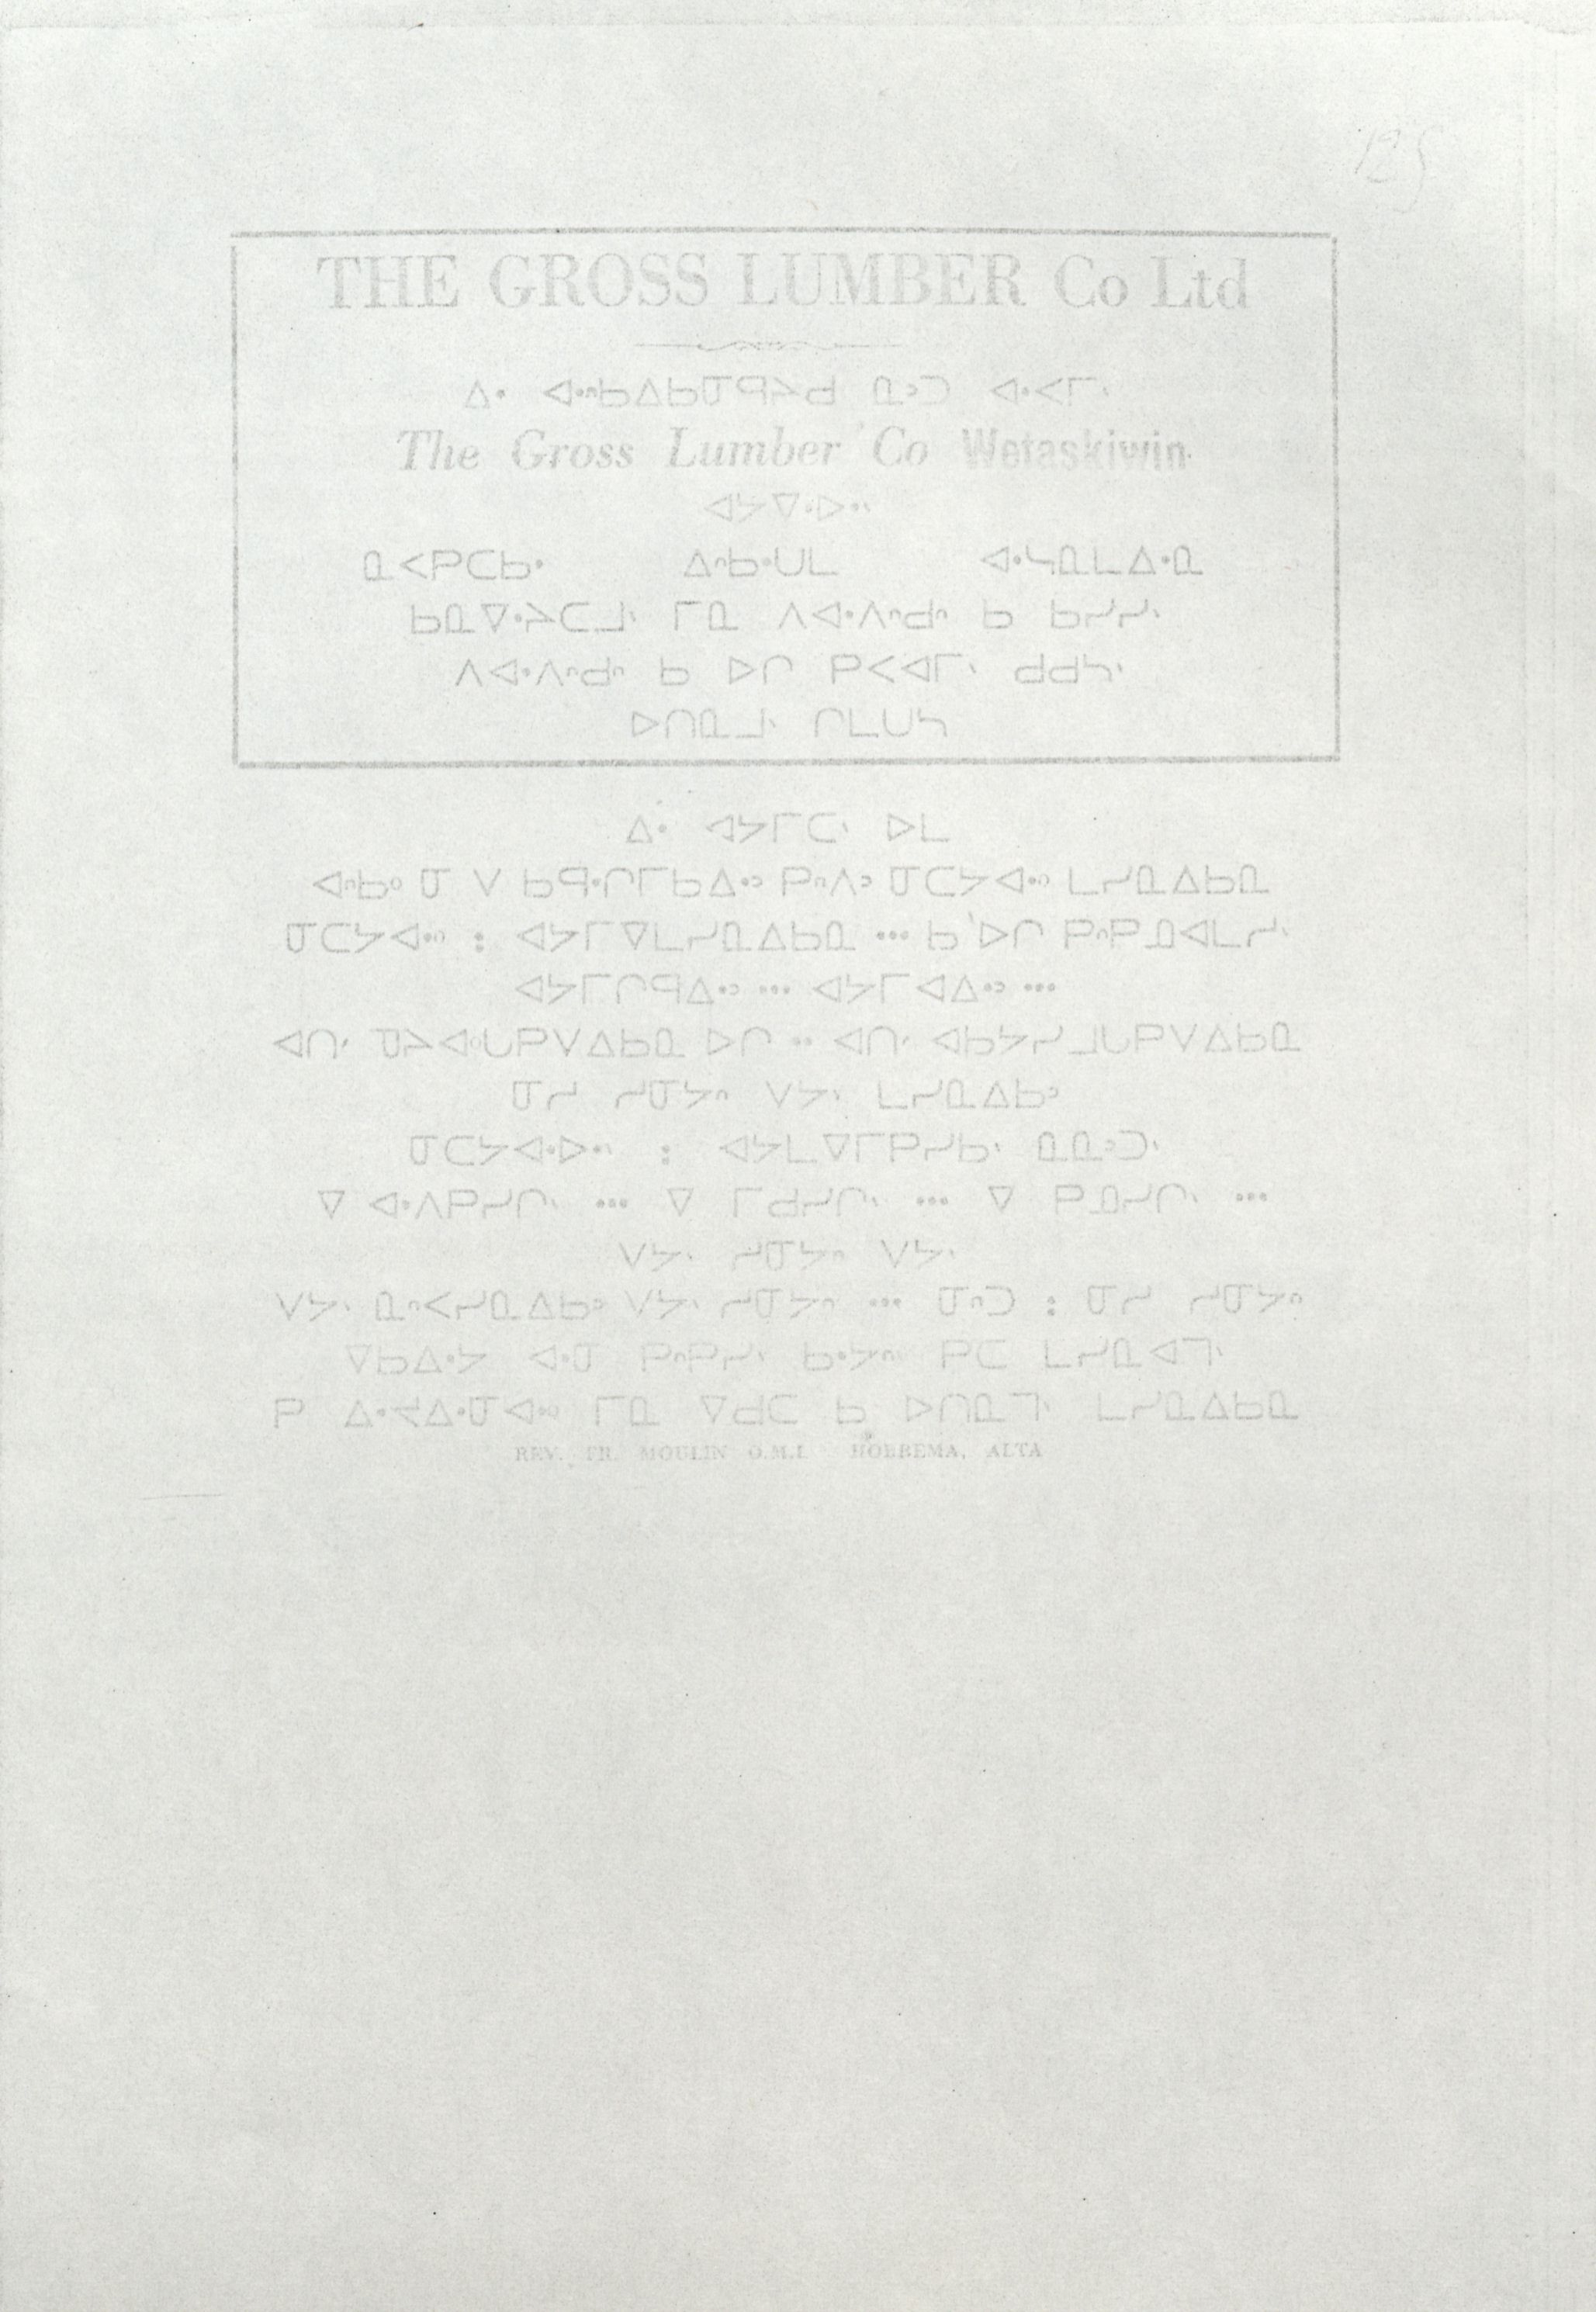 125
THE GROSS LUMBER Co Ltd
ᐃᐧ ᐊᐧᐢᑲᐃᑲᓂᑫᔨᑯ ᓇᐣᑐ ᐊᐧᐸᒥᐠ
The Gross Lumber Co Wetaskiwin
ᐊᔭᐁᐧᐅᐧᐠ
ᓇᐸᑭᑕᑲᐧ ᐃᐢᑲᐧᑌᒪ ᐊᐧᓴᓇᒪᐃᐧᓇ
ᑲᓇᐁᐧᔨᑕᒧᐠ ᒥᓇ ᐱᐊᐧᐱᐢᑯᐢ ᑲ ᑲᓯᓯᐠ
ᐱᐊᐧᐱᐢᑯᐢ ᑲ ᐅᒋ ᑭᐸᐊᒥᐠ ᑯᑯᓴᐠ
ᐅᑎᓇᒧᐠ ᒋᒪᑌᓴ
ᐃᐧ ᐊᔭᒥᑕᐠ ᐅᒪ
ᐊᐢᑲᐤ ᓂ ᐯ ᑲᑫᐧᒋᒥᑲᐃᐧᐣ ᑭᐢᐱᐣ ᓂᑕᔭᐊᐧᐢ ᒪᓯᓇᐃᑲᓇ
ᓂᑕᔭᐊᐧᐢ : ᐊᔭᒥᐁᒪᓯᓇᐃᑲᓇ ... ᑲ ᐅᒋ ᑭᐢᑭᓄᐊᒪᓯᐠ
ᐊᔭᒥᒋᑫᐃᐧᐣ ... ᐊᔭᒥᐊᐃᐧᐣ ...
ᓂᓯ ᓯᓂᔭᐢ ᐯᔭᐠ ᒪᓯᓇᐃᑲᐣ
ᓂᑕᔭᐊᐧᐅᐧᐢ : ᐊᔭᒪᐁᒥᑭᓯᑲᐠ ᓇᓇᐣᑐᐠ
ᐁ ᐊᐧᐱᑭᓯᒋᐠ ... ᐁ ᒥᑯᓯᒋᐠ ... ᐁ ᑭᓄᓯᒋᐠ ...
ᐯᔭᐠ ᓯᓂᔭᐢ ᐯᔭᐠ
ᐯᔭᐠ ᓇᐢᐸᓯᓇᐃᑲᐣ ᐯᔭᐠ ᓯᓂᔭᐢ ... ᓂᐢᑐ : ᓂᓯ ᓯᓂᔭᐢ
ᐁᑲᐃᐧᔭ ᐊᐧᓂ ᑭᐢᑭᓯᐠ ᑲᐧᔭᐢᐠ ᑭᑕ ᒪᓯᓇᐊᒣᐠ
ᑭ ᐃᐧᔮᐃᐧᓂᐊᐧᐤ ᒥᓇ ᐁᑯᑕ ᑲ ᐅᑎᓇᒣᐠ ᒪᓯᓇᐃᑲᓇ
REV. FR. MOULIN O.M.I. HOBBEMA, ALTA